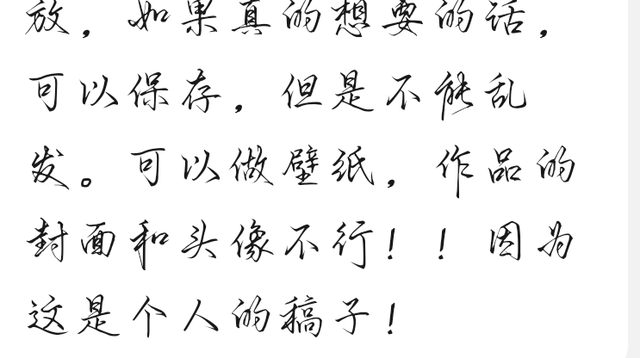 放，如果真的想要的话，
可以保存，但是不能乱
发。可以做壁纸，作品的
封面和头像不行！！因为
这是个人的稿子！